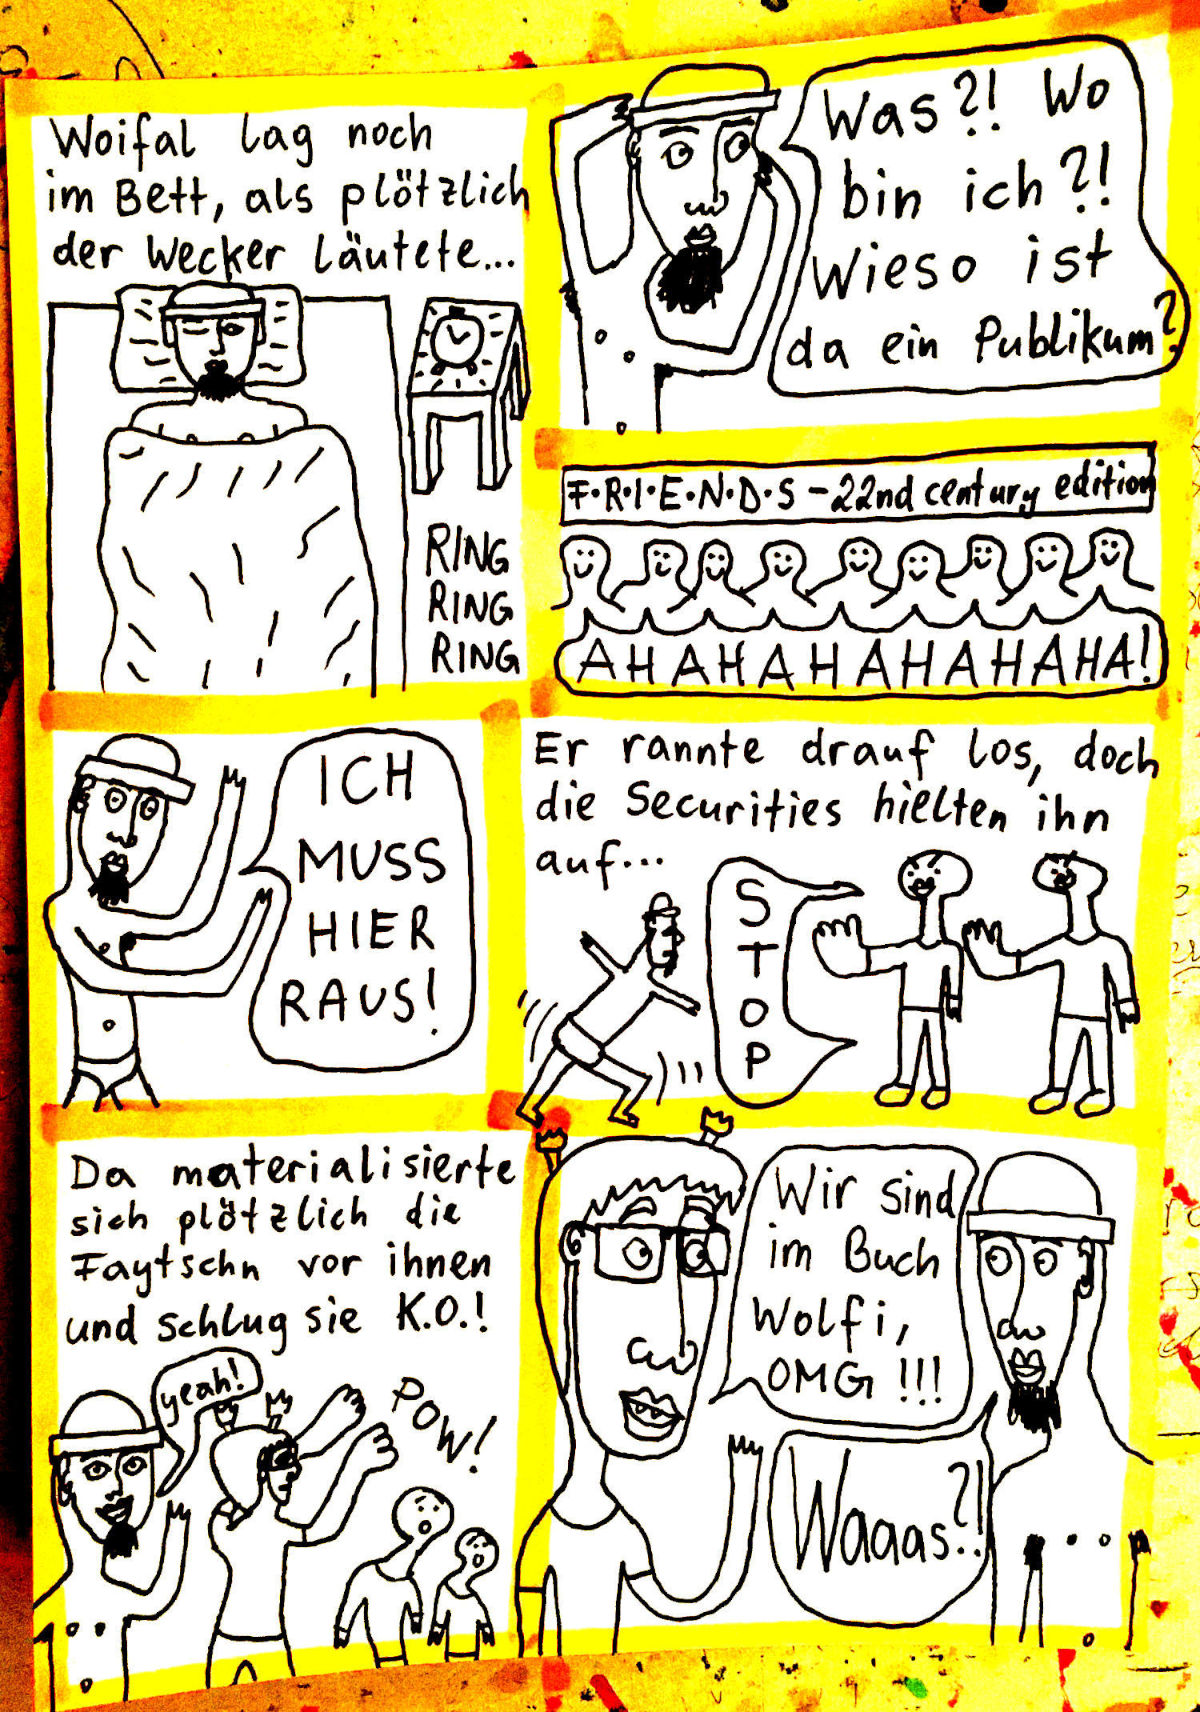 Woifal lag noch
im Bett, als plötzlich
der Wecker läutete...
RING
RING
RING
Was?! Wo
bin ich?!
Wieso ist
da ein Publikum?
F·R·I·E·N·D·S - 22nd century edition
AHAHAHAHAHAHA!
ICH
MUSS
HIER
RAUS!
Er rannte drauf los, doch
die Securities hielten ihn
auf...
S
T
O
P
Da materialisierte
sich plötzlich die
Faytschn vor ihnen
und schlug sie K.O.!
yeah!
POW!
Wir sind
im Buch
Wolfi,
OMG!!!
Waaas?!